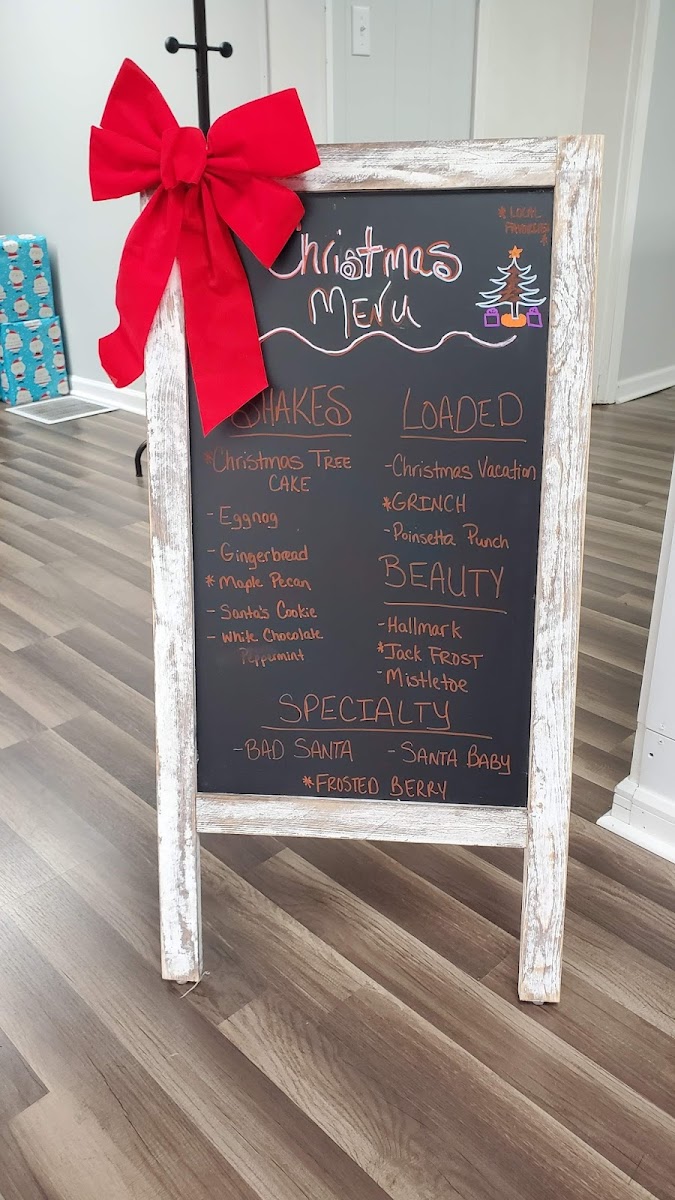 * LOCAL
FAVORITES *
Christmas
MENU
SHAKES
*Christmas TREE
CAKE
- Eggnog
- Gingerbread
* Maple Pecan
- Santa's Cookie
- White Chocolate
Peppermint
LOADED
-Christmas Vacation
*GRINCH
-Poinsetta Punch
BEAUTY
-Hallmark
*Jack FROST
-Mistletoe
SPECIALTY
-BAD SANTA -SANTA BABY
*FROSTED BERRY